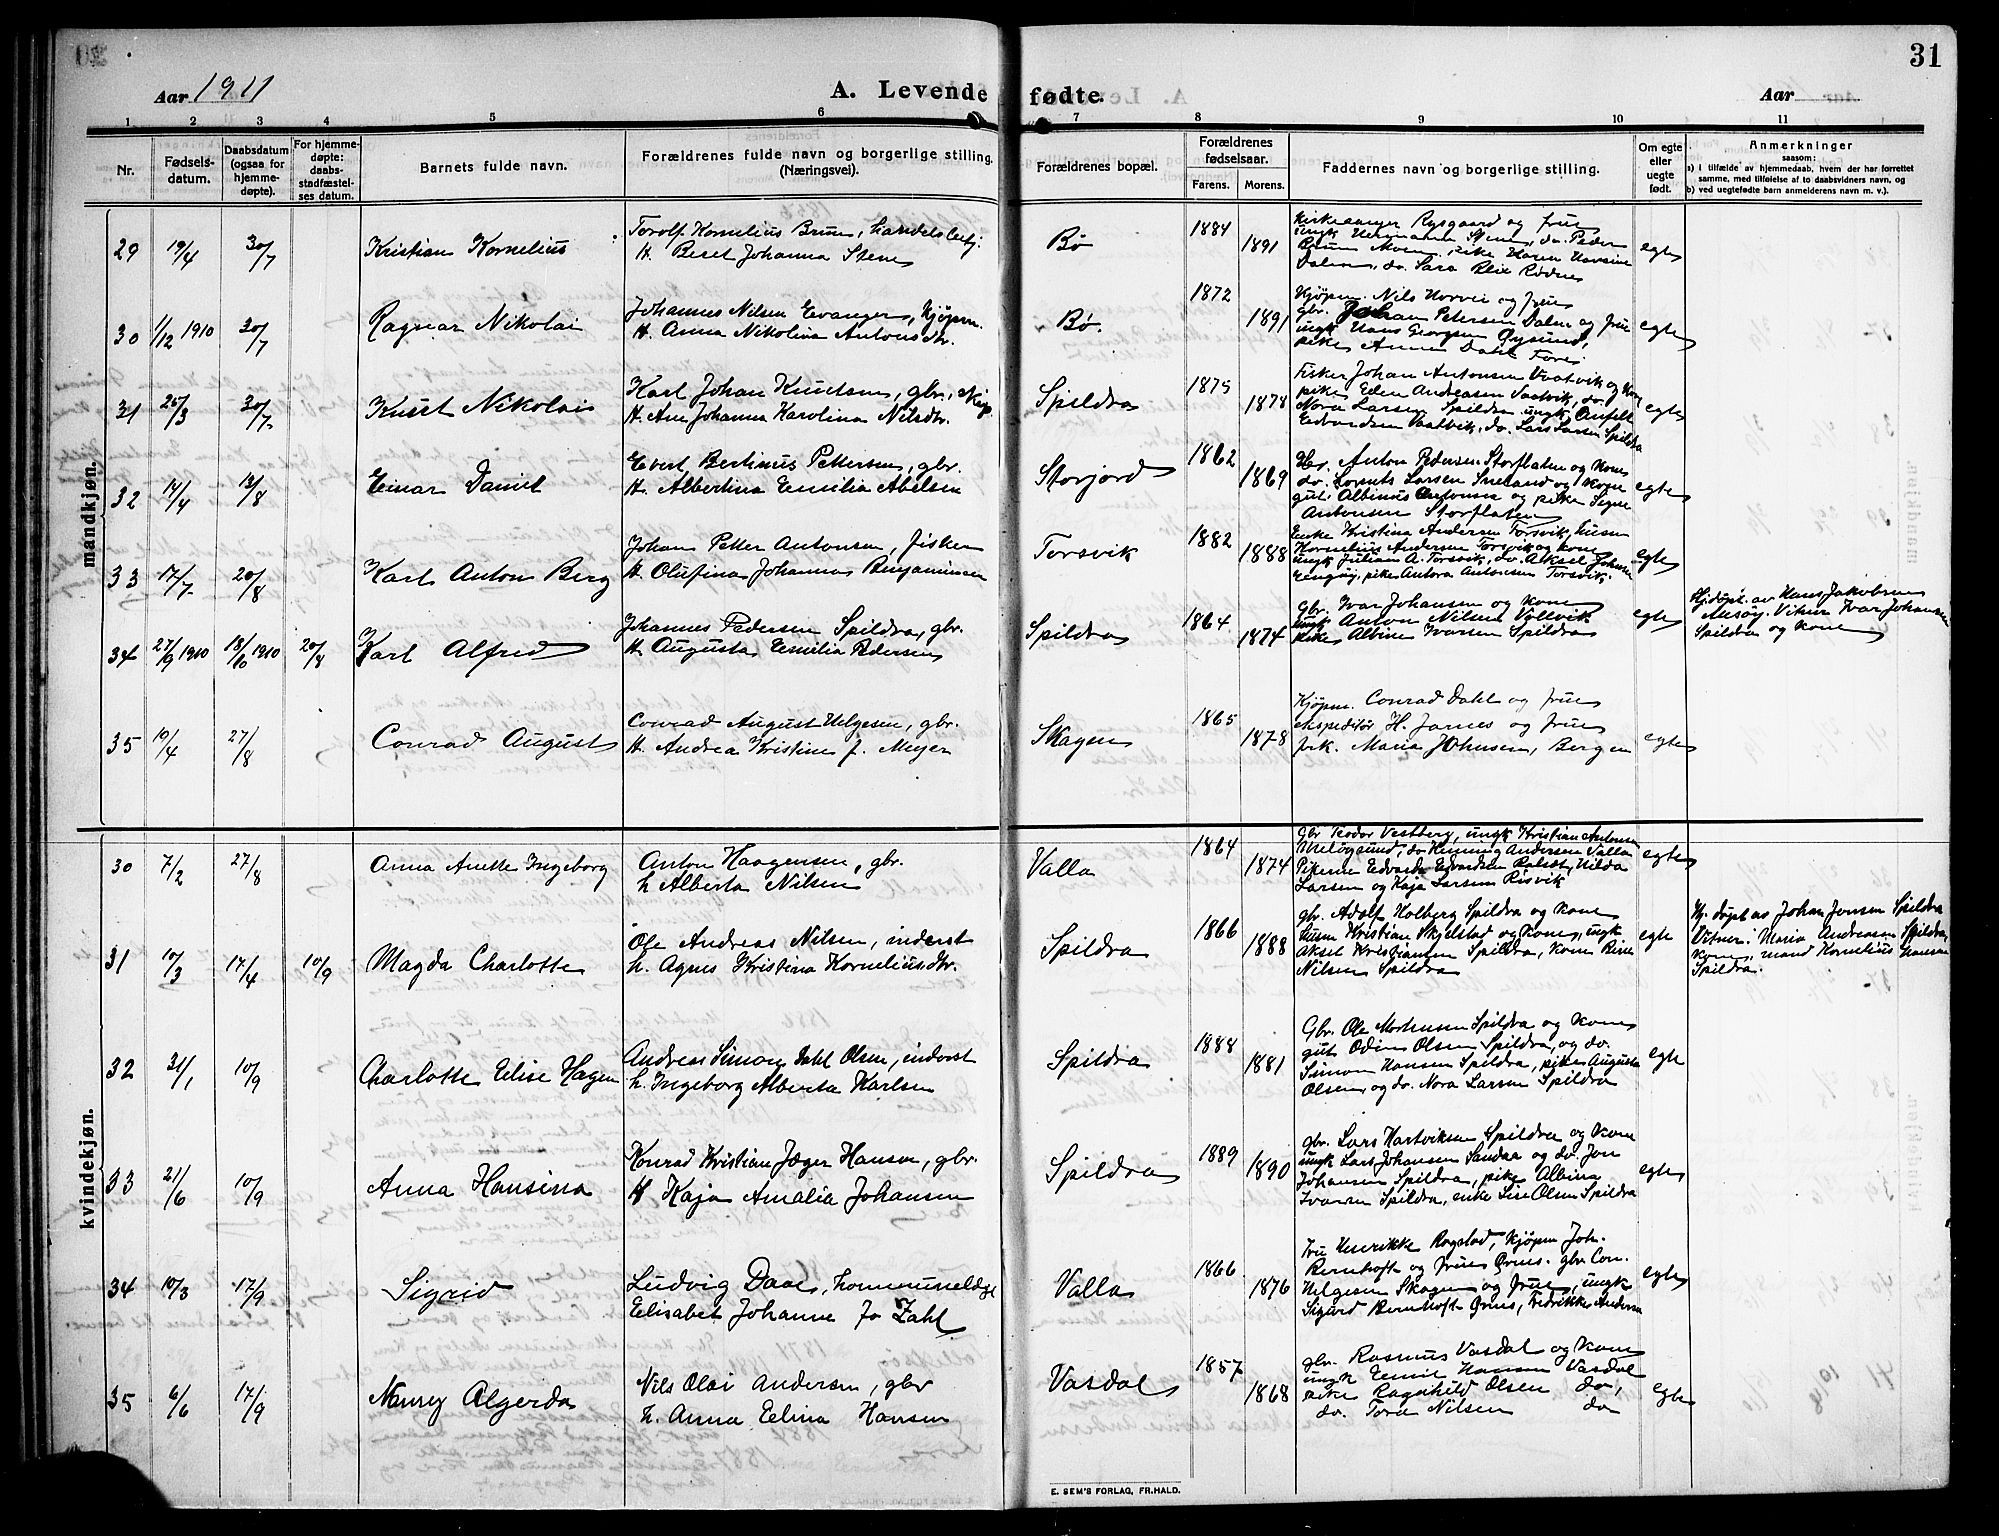 Aar 1911
A. Levende fødte.
Aar
31
1 2 3 4 5 6 7 8 9 10 11
Nr.
Fødsels-
datum.
Daabsdatum
(ogsaa for
hjemme-
døpte).
For hjemme-
døpte:
daabs-
stadfæstel-
ses datum.
Barnets fulde navn.
Forældrenes fulde navn og borgerlige stilling.
(Næringsvei).
Forældrenes bopæl.
Forældrenes
fødselsaar.
Farens. Morens.
Faddernes navn og borgerlige stilling.
Om egte
eller
uegte
født.
Anmerkninger
saasom:
a) i tilfælde av hjemmedaab, hvem der har forrettet
samme, med tilføielse af to daabsvidners navn, og
b) ved uegtefødte barn anmelderens navn m. v.).
mandkjøn.
29 19/4 30/7 Kristian Kornelius
Torolf Kornelius Bruun, handelsbetj.
H. Beret Johanna Stene
Bø 1884 1891
Kirkesanger Rysgaard og frue
ungk Hermann Stene, do. Peder
egte
30 1/12 1910 30/7 Ragnar Nikolai
Johannes Nilsen Evanger, kjøpm.
H. Anna Nikolina Antonsdtr.
Bø. 1872 1891
Kjøpm. Nils Horvei og frue
gbr. Johan Petersen Dalen og frue
ungk Hans Georgsen Øysund,
pike Anna Dahl Forø
egte
31 25/3 30/7 Knut Nikolai
Karl Johan Knutsen, gbr.,
H. Ane Johanna Karolina Nilsdtr.
Spildra 1875 1878
Fisker Johan Antonsen Vaatvik og kone
pike Eden Andreasen Vaatvik, do.
Nora Larsen Spildra ungk. Anfelt
Edvardsen Vaatvik, do. Lars Larsen Spildra
egte
32 14/4 13/8 Einar Daniel
Evert Bertinus Pettersen, gbr.
H. Albertina Emilia Abelsen
Storjord 1862 1869
Gbr. Anton Pedersen Storflaten og kone
do. Lornts Larsen Sneland og kone
gut Albinus Antonsen og pike Signe
Antonsen Storflaten
egte
33 17/7 20/8 Karl Anton Berg
Johan Petter Antonsen, fisker
H. Olufina Johanna Benjaminsen
Torsvik 1882 1888
Enke Kristina Andersen Torsvik, husm
Kornelius Andersen Torsvik og kone
ungk Julian A. Torsvik, do. Aksel Johnsen
Engavaag, pike Antora Antonsen Torsvik.
egte
34 27/9 1910 18/10 1910 20/8 Karl Alfred
Johannes Pedersen Spildra, gbr.
H. Augusta Emilia Pedersen
Spildra 1864 1874
gbr. Ivar Johansen og kone
ungk Anton Nilsen Vallvik
pike Albine Ivarsen Spildra
egte
Hj.døpt. av Hans Jakobsen
Mesøy. Vitner Ivar Johansen
Spildra og kone
35 19/4 27/8 Conrad August
Conrad August Helgesen, gbr.
H. Andrea Kristine f. Meyer
Skagen 1865 1878
Kjøpm. Conrad Dahl og frue
ekspeditør H. Jarnes og frue
frk. Maria Johnsen, Bergen
egte
kvindekjøn.
30 7/2 27/8 Anna Anette Ingeborg
Anton Haagensen, gbr.
h Alberta Nilsen
Valla 1864 1874
Gbr Teodor Vestberg, ungk Kristian Antonsen
Meløysund, do Henning Andersen Valla
Pikerne Edvarda Edvardsen Rabidt, Hilda
Larsen og Kaja Larsen Risvik
egte
31 10/3 17/4 10/9 Magda Charlotte
Ole Andreas Nilsen, inderst
h. Agnes Kristina Korneliusdtr.
Spildra 1866 1888
gbr. Adolf Holberg Spildra og kone
husm Kristian Skjelstad og kone, ungk
Aksel Kristiansen Spildra, kone Berse
Nilsen Spildra
egte
Hj. døpt av Johan Jensen Spildra
Vitner: Maria Andreasen Spildra,
kone, mand Kornelius Hansen
Spildra.
32 31/1 10/9 Charlotte Elise Hagen
Andreas Simon Dahl Olsen, inderst
h. Ingeborg Alberta Karlsen
Spildra 1888 1881
Gbr. Ole Mortensen Spildra og kone
gut Odin Olsen Spildra, og do.
Simon Hansen Spildra, pike Augusta
Olsen, og do. Nora Larsen Spildra
egte
33 21/6 10/9 Anna Hansina
Konrad Kristian Jæger Hansen, gbr.
H Kaja Amalia Johansen
Spildra 1889 1890
gbr. Lars Hartviksen Spildra og kone
ungk Lars Johansen Sandaa og do. Jon
Johansen Spildra, pike Albina
Ivarsen Spildra, enke Lise Olsen Spildra
egte
34 10/3 17/9 Sigrid
Ludvig Daae, kommunelæge
Elisabet Johanne fo Zahl
Valla 1866 1876
Fru Henrikke Rogstad, kjøpm Joh.
Bernhoft og frue Ørnes. gbr Con.
Helgesen Skagen og frue, ungk
Sigurd Bernhoft Ørnes, Fredrikke Andersen
egte
35 6/6 17/9 Nanny Algerda
Nils Olai Andersen, gbr
h. Anna Elina Hansen
Vasdal 1857 1868
gbr. Rasmus Vasdal og kone
ungk Emil Hansen Vasdal
pike Ragnhild Olsen do,
do. Tora Nilsen do
egte
E. SEM'S FORLAG, FR.HALD.